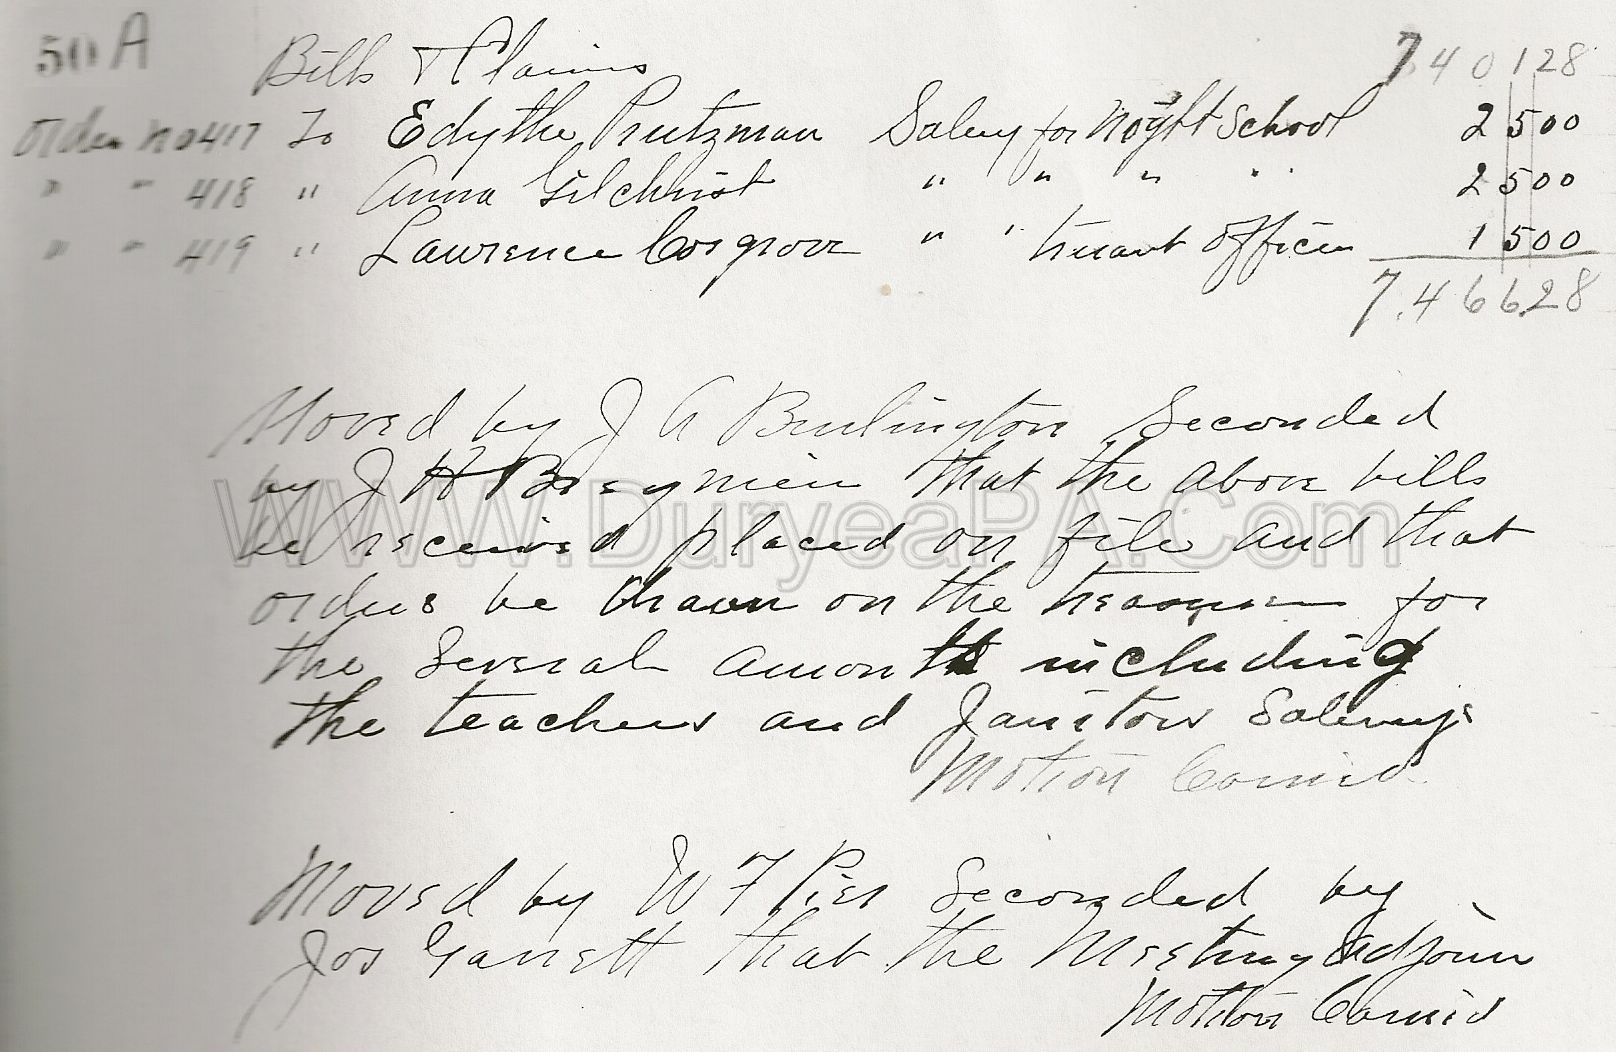 50 A Bills & Claims 7 4 0 1 28
Order no 417 To Edythe Prutzman Salery for Night School 2 5 00
" " 418 " Anna Gilchrist " " " " 2 5 00
" " 419 " Lawrence Cosgrove " " truant Officer 1 5 00
7.4 6 6.28
Moved by J A Burlington Seconded
by J H that the above bills
be received placed on file and that
orders be drawn on the treasurer for
the several amonts including
the teachers and Janitors Salerys
Motion Carried
Moved by W F Pier Seconded by
Jos Garrett that the Meeting adjourn
Motion Carried
WWW.DuryeaPA.Com